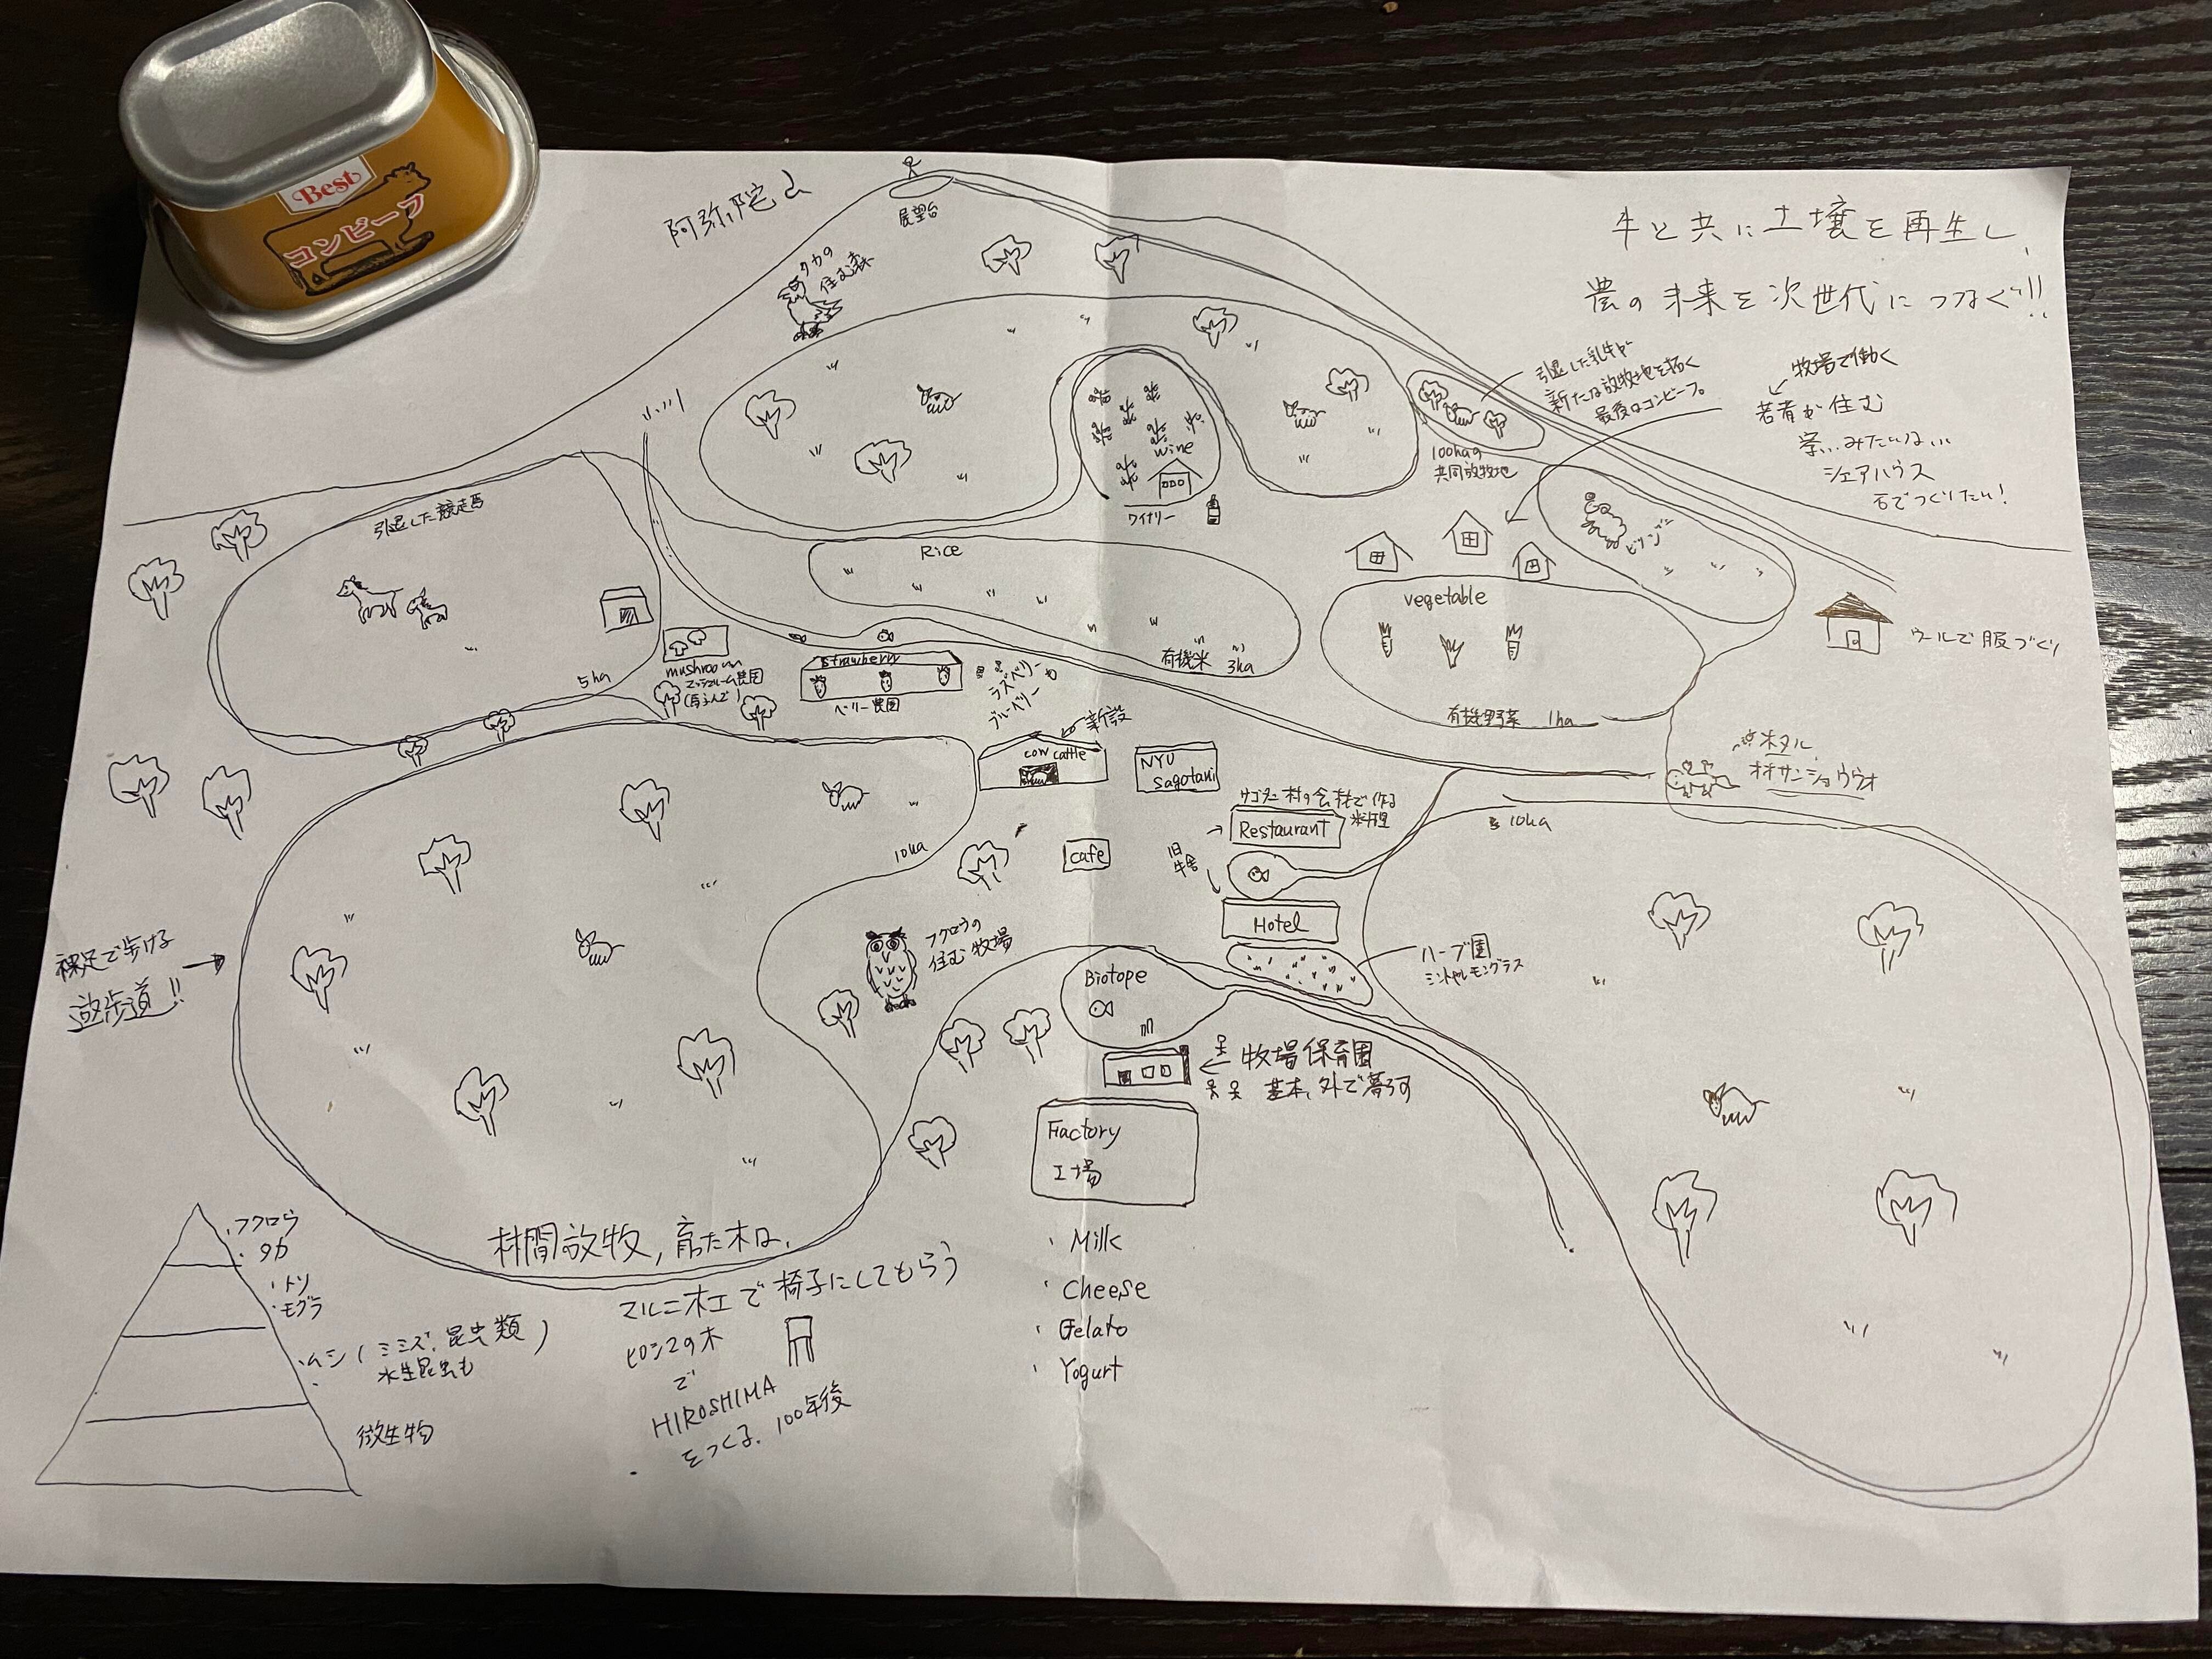 Best
コンビーフ
阿弥陀山
展望台
タカの
住む森
牛と共に土壌を再生し、
農の未来を次世代につなぐ!!
引退した乳牛が
新たな放牧地を拓く
最後はコンビーフ。
牧場で働く
若者が住む
寮...みたいな...
シェアハウス
石でつくりたい!
100haの
共同放牧地
wine
ワイナリー
ヒツジ
引退した競走馬
5ha
Rice
有機米 3ha
vegetable
有機野菜 1ha
ウールで服づくり
mushroom
マッシュルーム農園
strawberry
ベリー農園
ラズベリー
ブルーベリー
新設
cow cattle
NYU
sagotani
ホタル
オオサンショウウオ
サゴタニ村の食材で作る
料理
Restaurant
旧
牛舎
Hotel
cafe
10ha
10ha
ハーブ園
ミントやレモングラス
フクロウの
住む牧場
裸足で歩ける
遊歩道!!
Biotope
牧場保育園
基本、外で暮らす
Factory
工場
・Milk
・Cheese
・Gelato
・Yogurt
林間放牧,育った木は、
マルニ木工で椅子にしてもらう
ヒロシマの木
で
HIROSHIMA
をつくる. 100年後
・フクロウ
・タカ
・トリ
・モグラ
・ムシ(ミミズ、昆虫類)
水生昆虫も
微生物